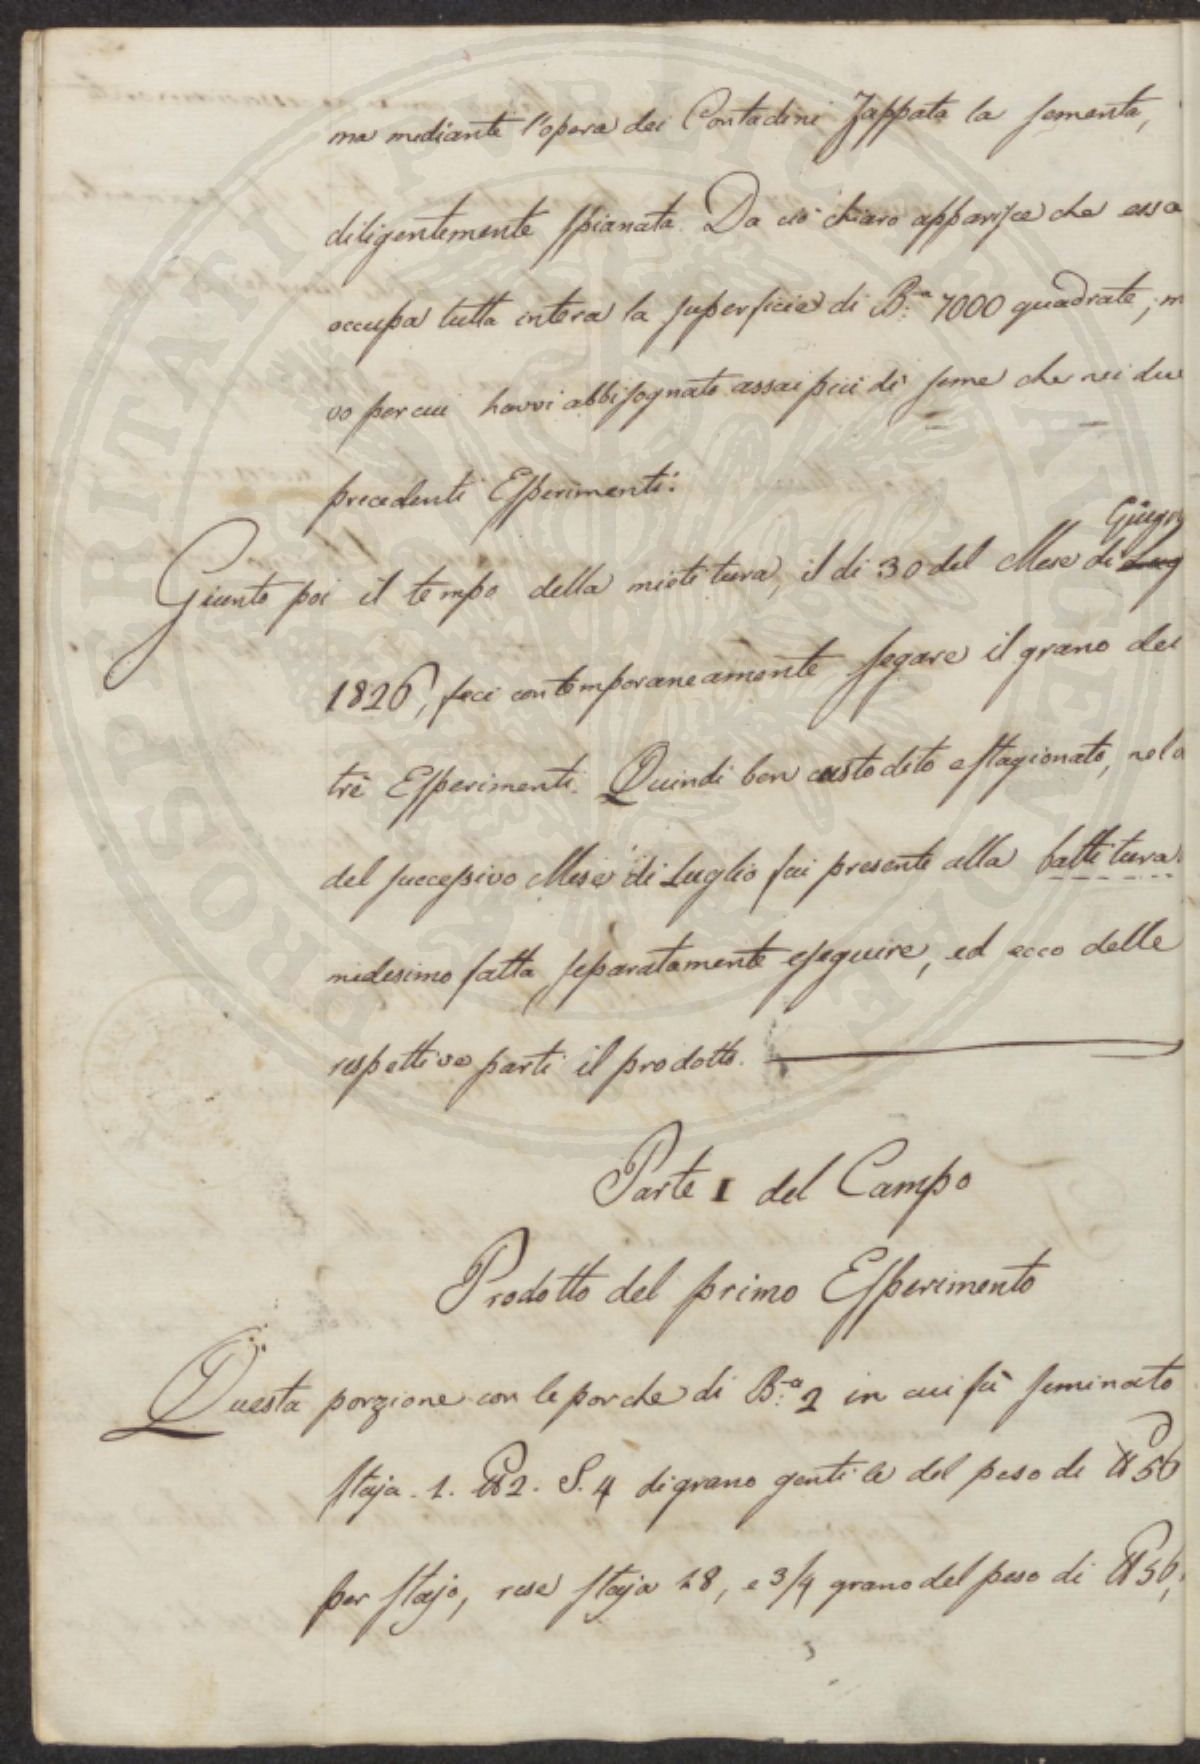 ma mediante l'opera dei Contadini Zappata la sementa,
diligentemente spianata. Da ciò chiaro apparisce che essa
occupa tutta intera la superficie di B.a 7000 quadrate, m
vo per cui havvi abbisognato assai più di seme che nei due
precedenti Esperimenti.
Giugn
Giunto poi il tempo della mietitura, il dì 30 del Mese di Lug
1826, feci contemporaneamente segare il grano dei
trè Esperimenti. Quindi ben custodito e stagionato, nel
del successivo Mese di Luglio fui presente alla battitura
medesimo fatta separatamente eseguire, ed ecco delle
respettive parti il prodotto.
Parte I del Campo
Prodotto del primo Esperimento
Questa porzione con le porche di B.a 2 in cui fù seminato
staja. 1. 2. S. 4 di grano gentile del peso di 56
per stajo, rese staja 28, e 3/4 grano del peso di 56,
PROSPERITATI PVBLICAE AVGENDAE